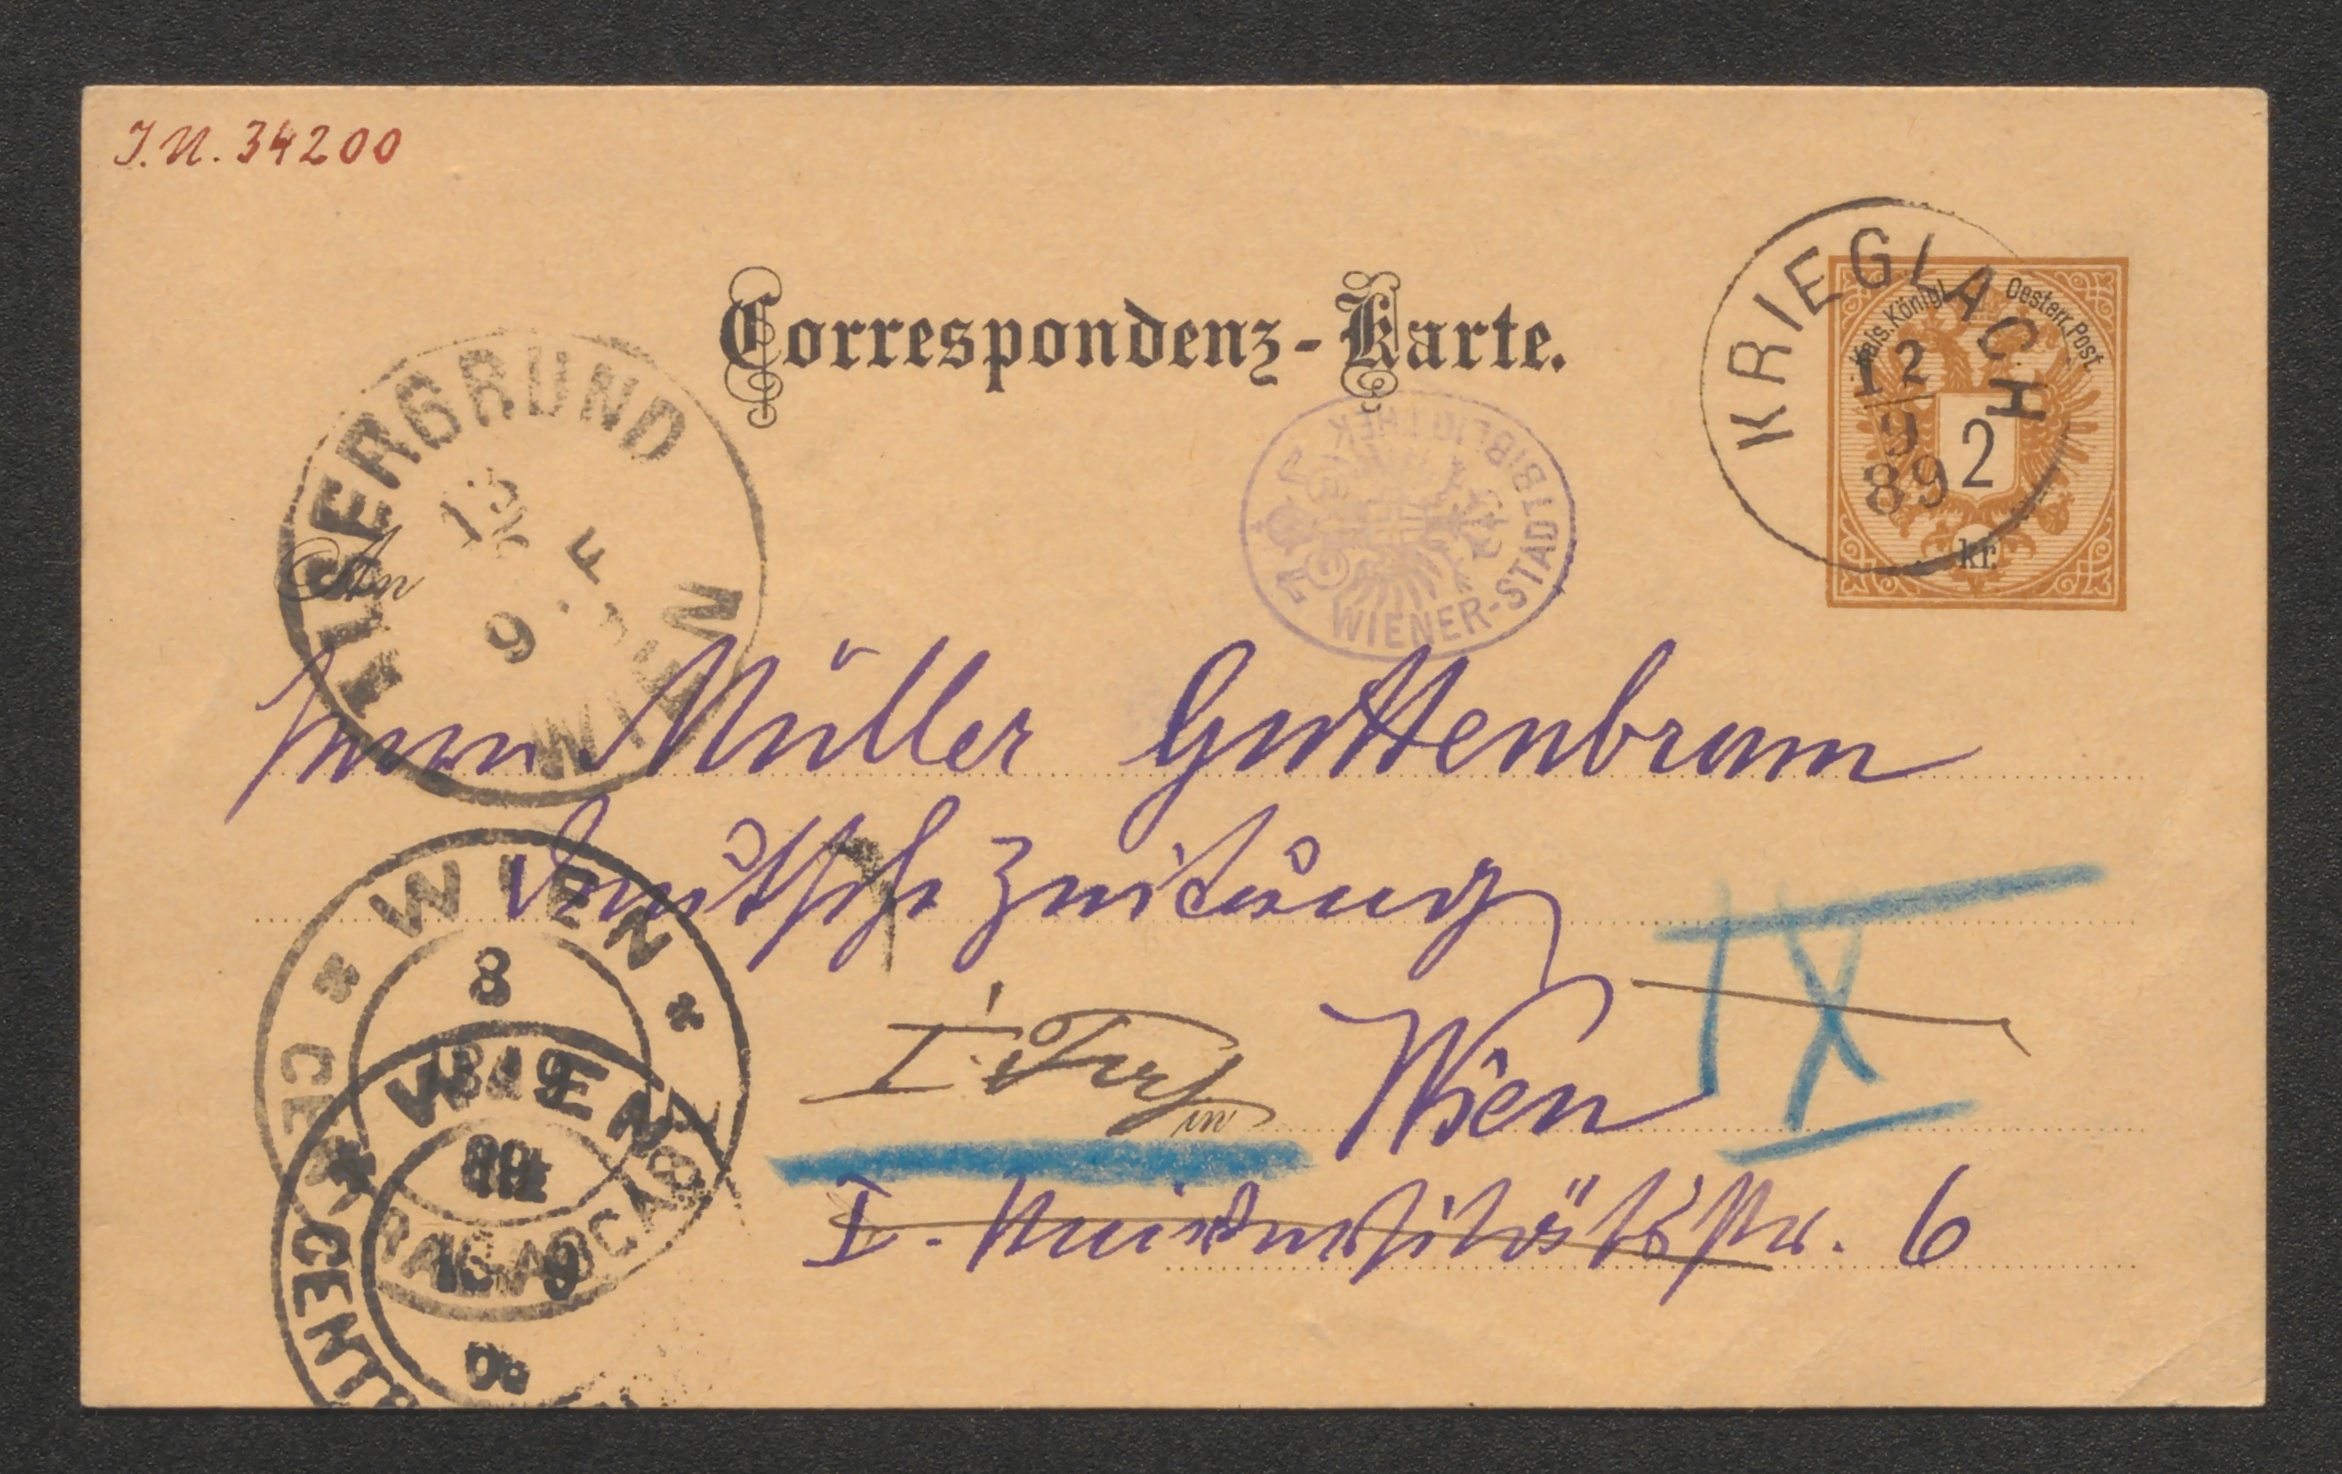 I.N. 34200
Correspondenz-Karte.
KRIEGLACH
12
9
89
Kais. Königl. Oesterr. Post
2
kr.
ALSERGRUND
13
9
F
WIEN
WIENER-STADTBIBLIOTHEK
An
Herrn Müller Guttenbrunn
Deutsche Zeitung
IX
in Wien
I. 6
WIEN
8
WIEN
CENTR